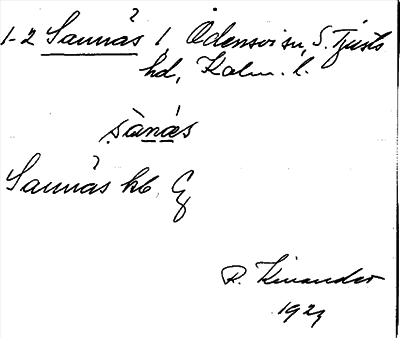 1-2 Saunås 1, Odensvi sn, S. Tjusts
hd, Kalm. l.
sànás
Saunås hb,
R. Kinander
1929